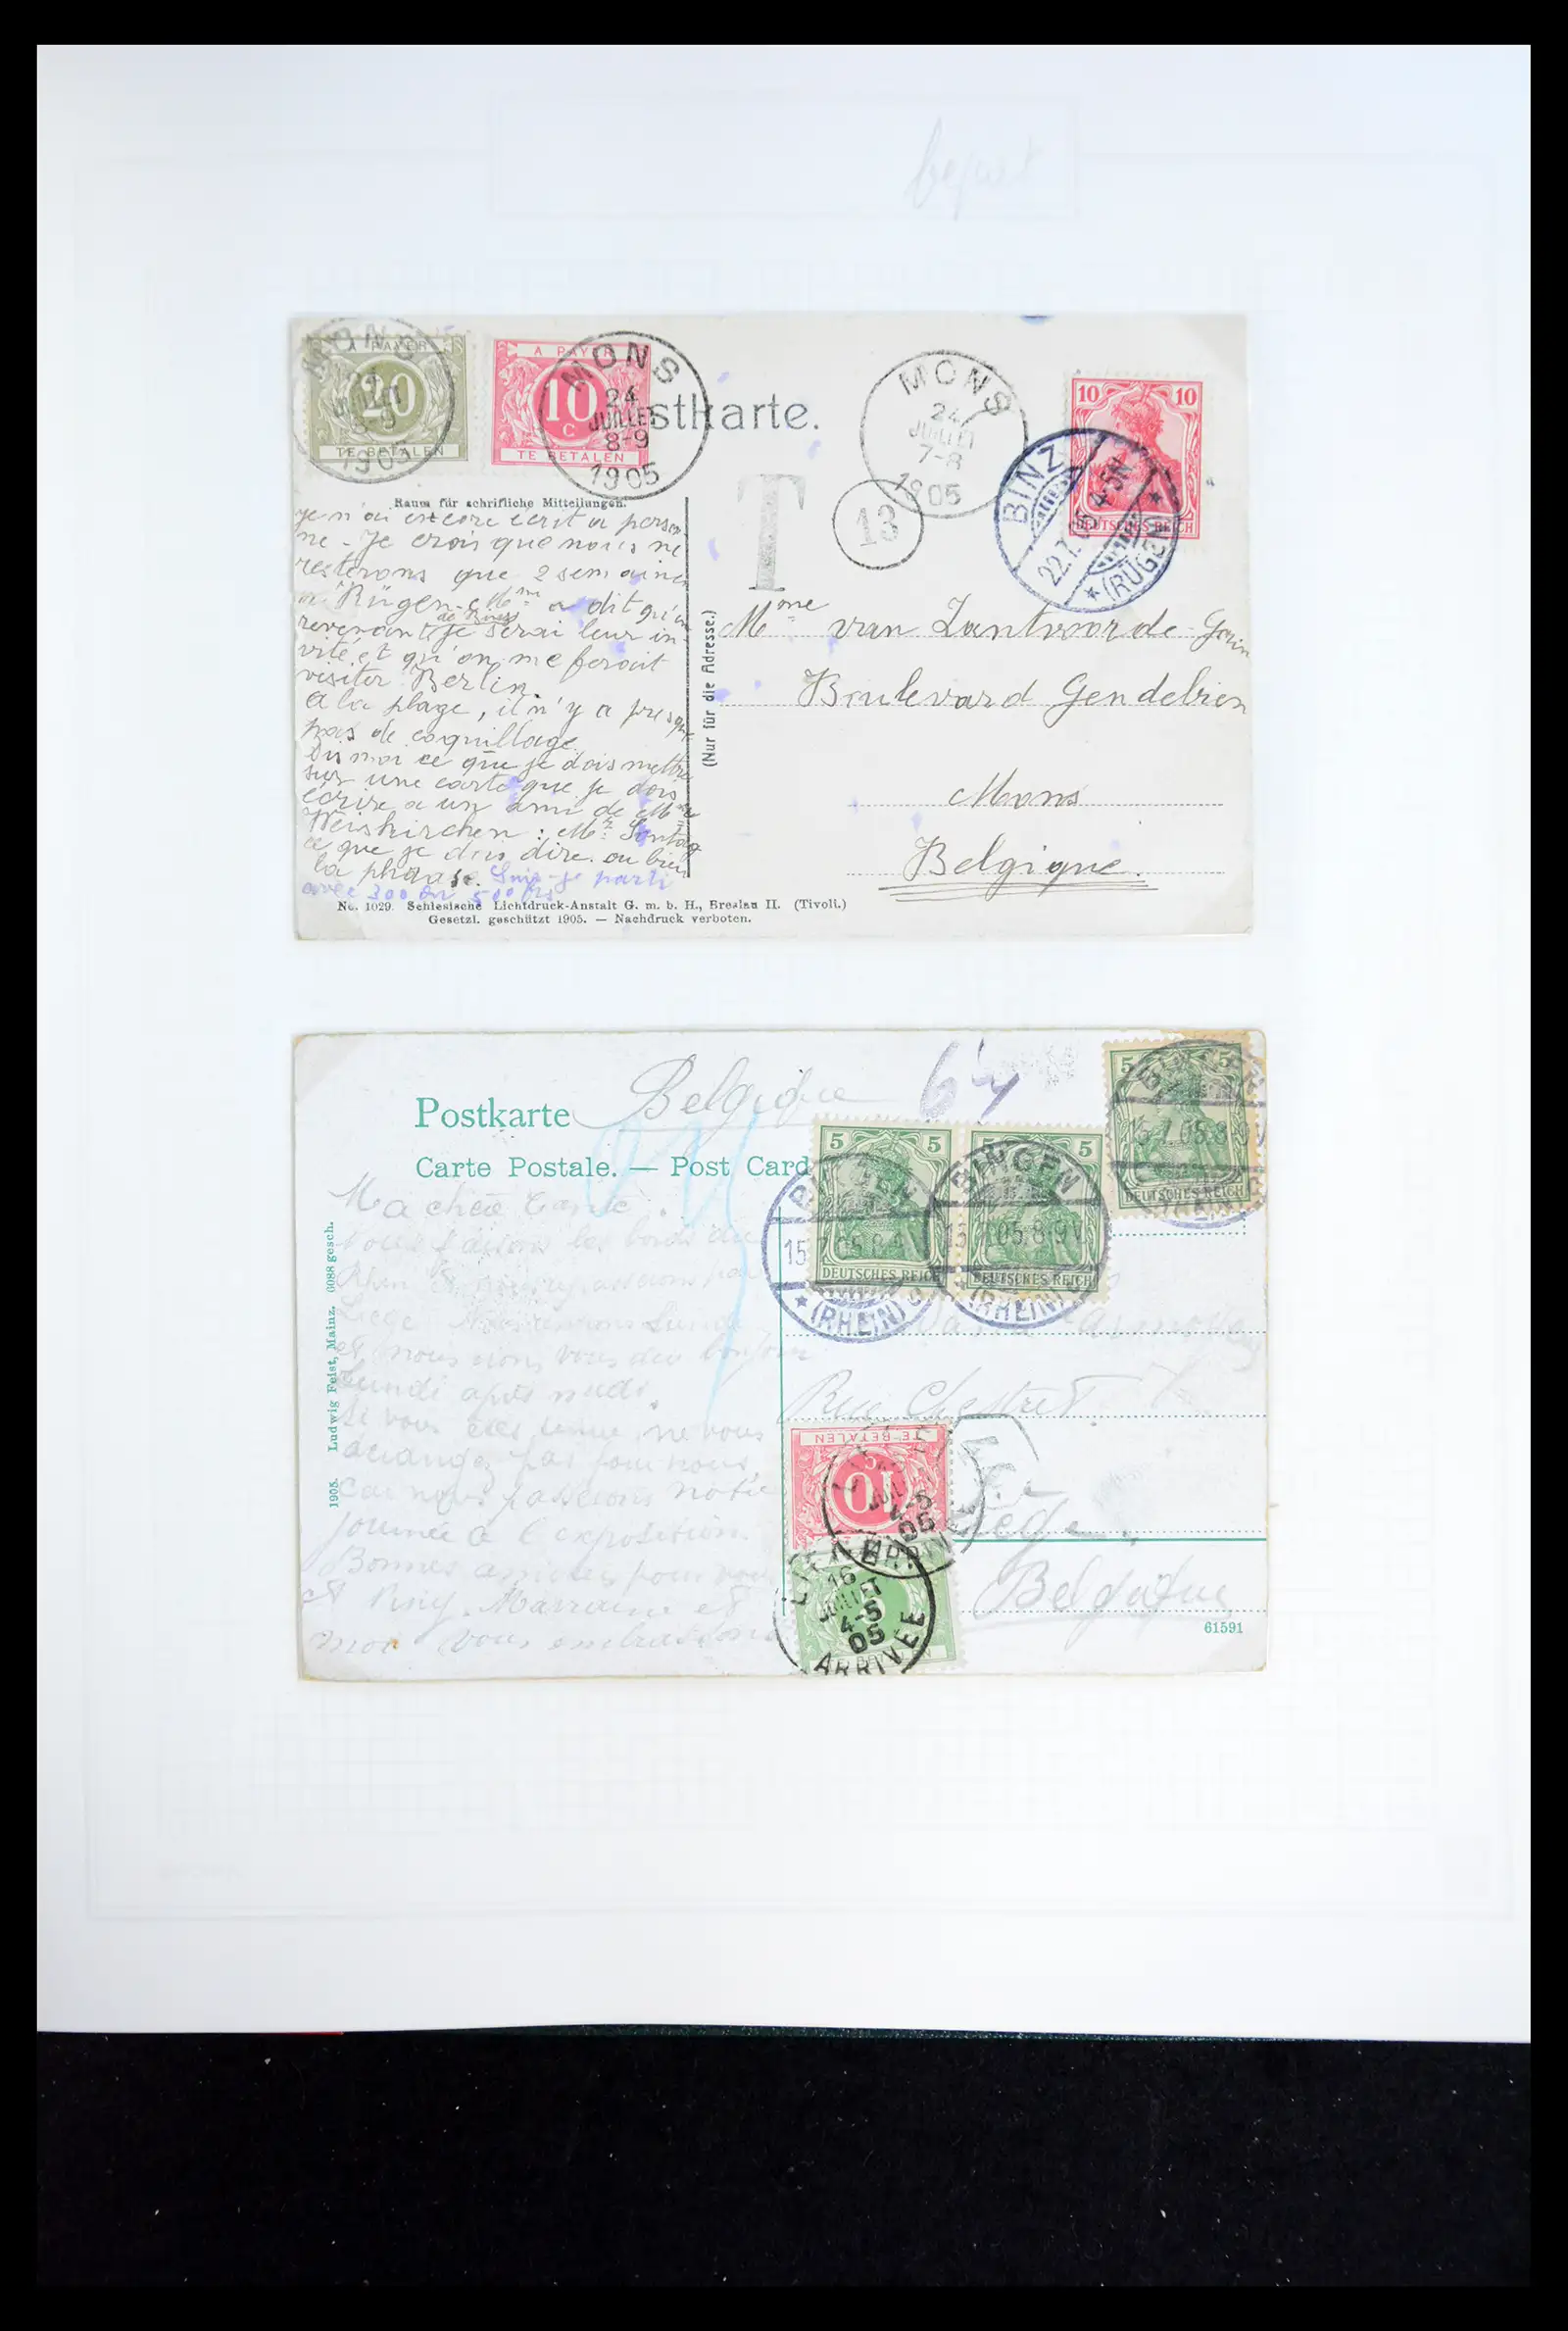 MONS
A PAYER
20
TE BETALEN
1905
A PAYER
10
C
TE BETALEN
MONS
24
JUILLET
8-9
1905
stkarte.
MONS
24
JUILLET
7-8
1905
T
13
10 10
DEUTSCHES REICH
BINZ
22.7.05.4-5N
*(RÜGEN)*
Raum für schriftliche Mitteilungen.
je n'ai encore écrit a person
ne - Je crois que nous ne
resterons que 2 semaines
a Rügen - Mme a dit qu'en
revenant, je serai leur in-
vité, et qu'on me ferait
visiter Berlin.
A la plage, il n'y a presque
pas de coquillage.
Dis moi ce que je dois mettre
sur une carte que je dois
écrire a un ami de Mme
Weiskirchen : Mr. Sontag
ce que je dois dire. ou bien
la phrase. Suis-je parti
avec 300 ou 500 frs
(Nur für die Adresse.)
Mme van Zantvoorde-
Boulevard Gendebien
Mons
Belgique.
No. 1029. Schlesische Lichtdruck-Anstalt G. m. b. H., Breslau II. (Tivoli.)
Gesetzl. geschützt 1905. — Nachdruck verboten.
Belgique
64
Postkarte
Carte Postale. — Post Card
5 5
DEUTSCHES REICH
5 5
DEUTSCHES REICH
5 5
DEUTSCHES REICH
15.7.05.8-9V
(RHEIN)
BINGEN
15.7.05.8-9V
(RHEIN)
Ma chère Tante.
nous faisons les bords du
Rhin
Liège. Nous
et nous irons vous dire bonjour
Lundi après midi.
Si vous ne vous
dérangez pas pour nous
car nous passerons notre
journée à l'exposition.
Bonnes amitiés pour vous
et Marraine et
moi vous embrassons
1905. Ludwig Feist, Mainz. 6088 gesch.
Rue Chestret.
TE BETALEN
10
C
JUILLET
4-5
05
16
JUILLET
4-5
05
ARRIVÉE
Belgique
61591